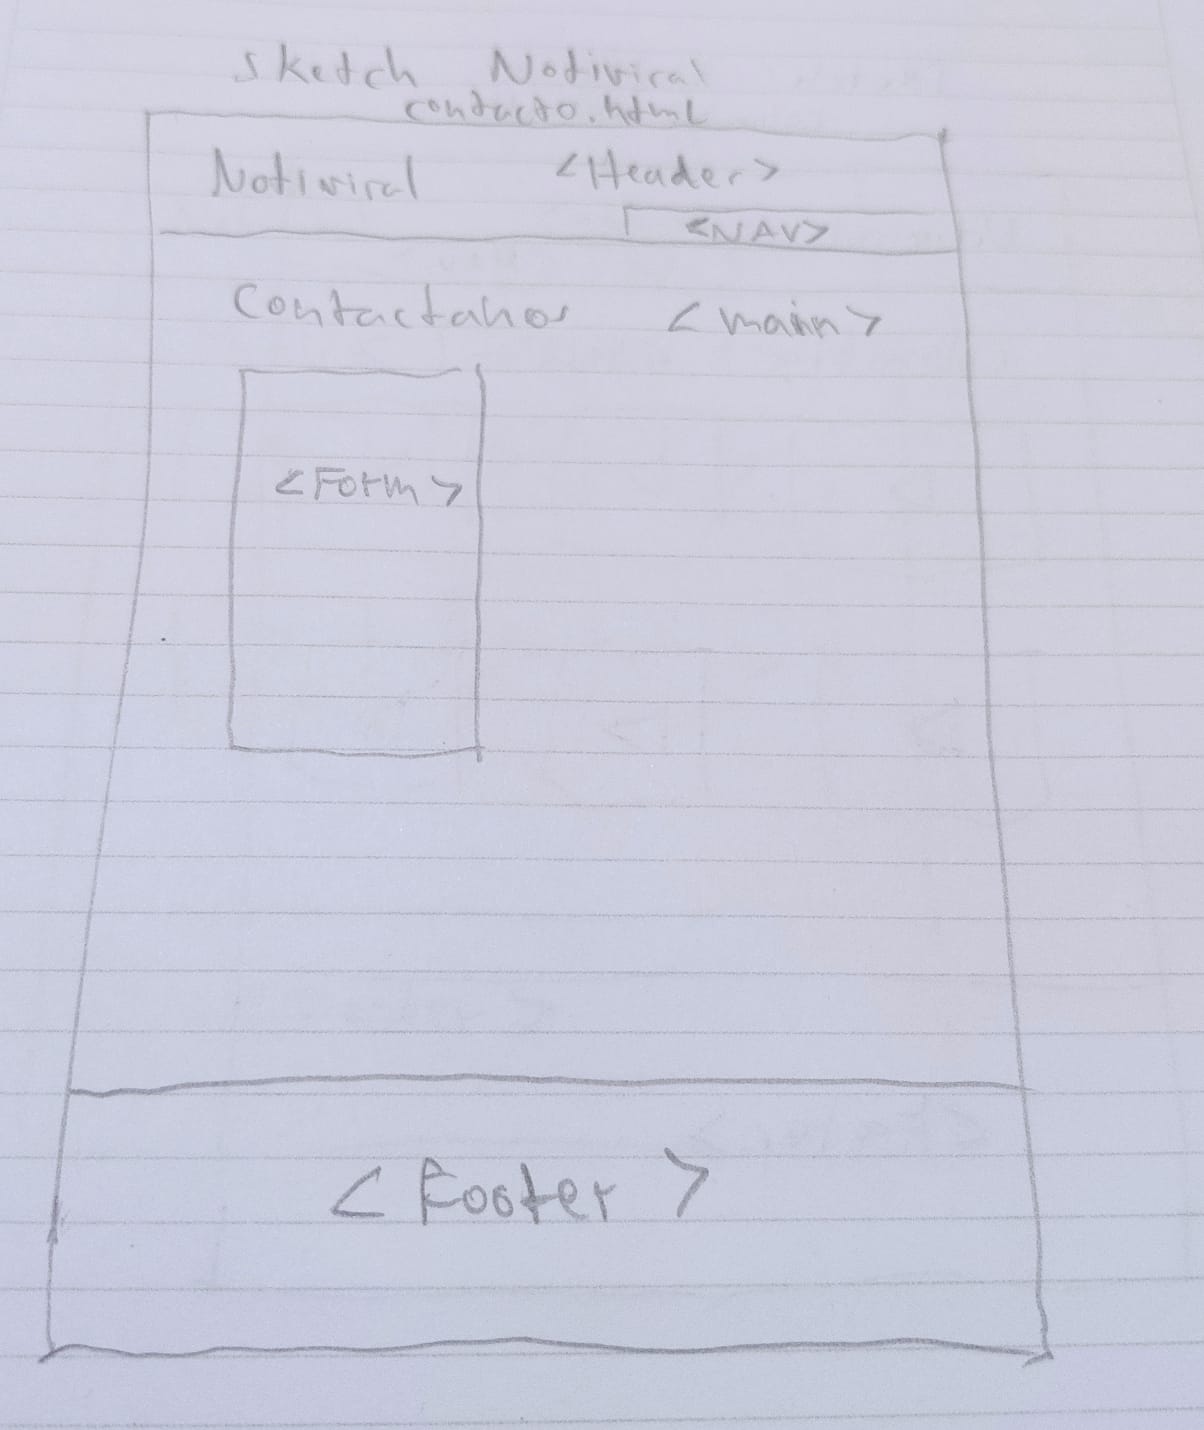 Sketch Notiviral
contacto.html
Notiviral <Header>
<NAV>
Contactanos <main>
<Form>
<Footer>